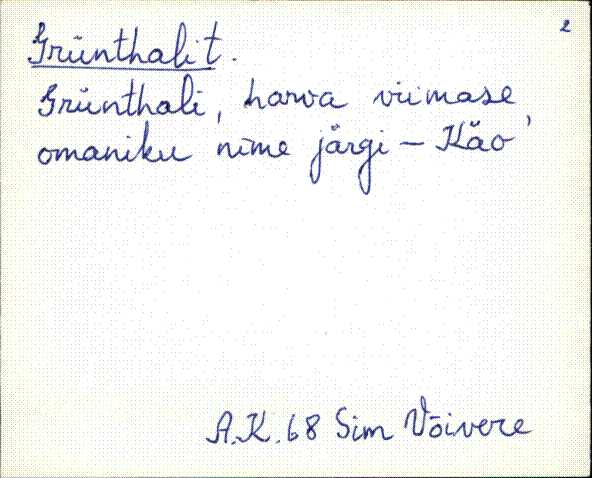 2
Grünthali t.
Grünthali, harva viimase
omaniku nime järgi – Käo'
A.K. 68 Sim Võivere